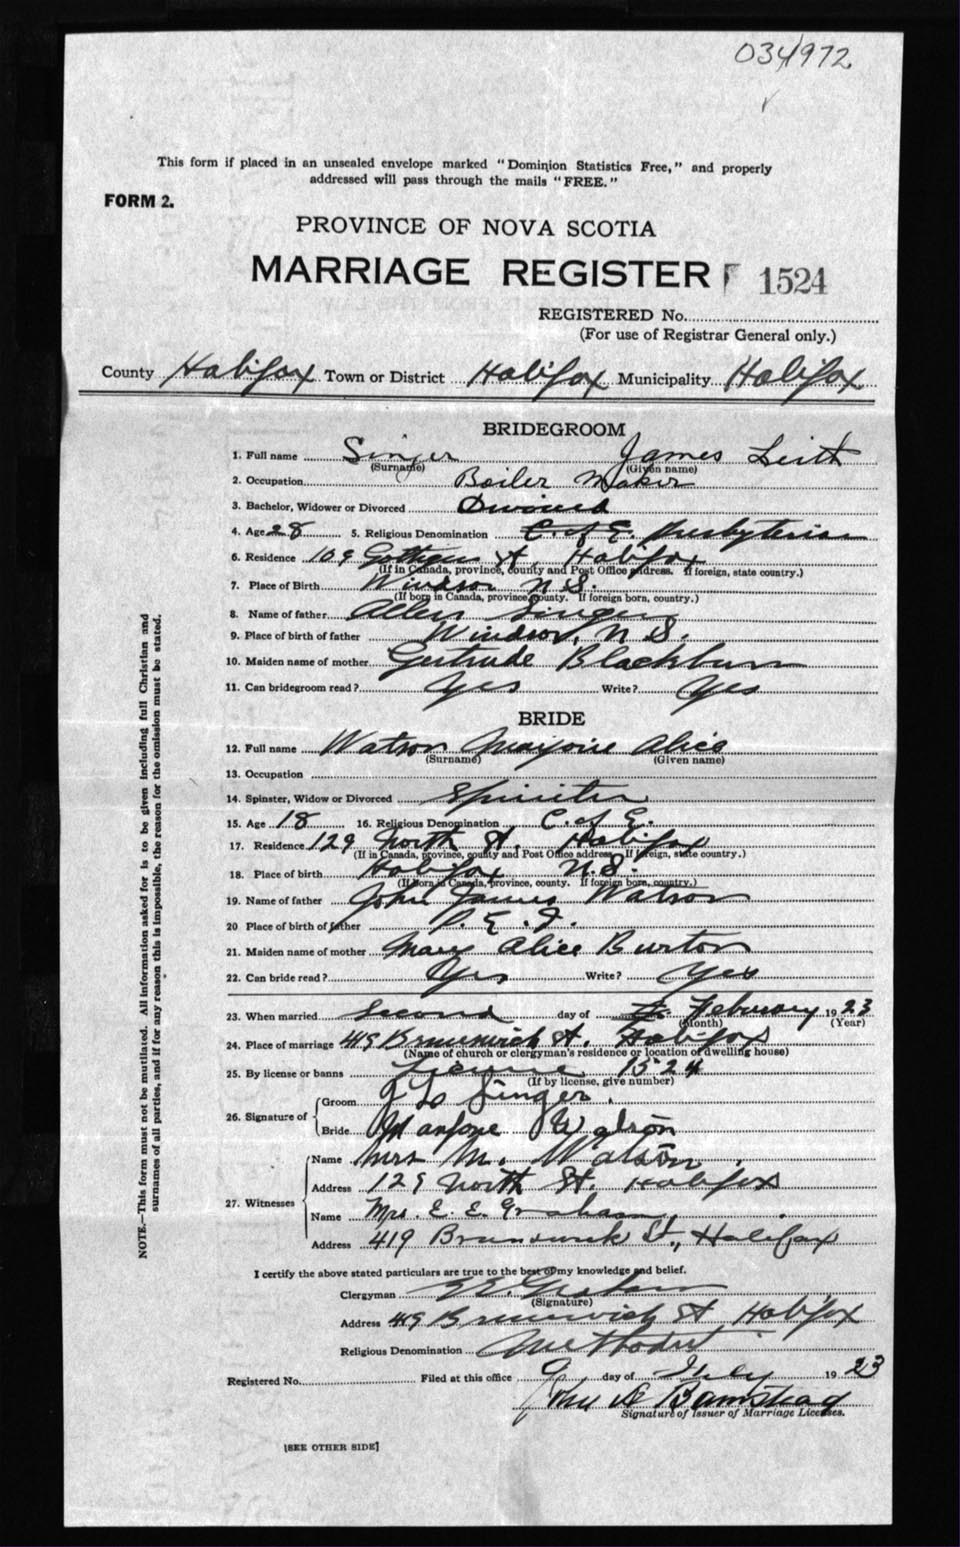 034972
This form if placed in an unsealed envelope marked "Dominion Statistics Free," and properly
addressed will pass through the mails "FREE."
FORM 2.
PROVINCE OF NOVA SCOTIA
MARRIAGE REGISTER 1524
REGISTERED No.
(For use of Registrar General only.)
County Halifax Town or District Halifax Municipality Halifax
BRIDEGROOM
1. Full name Singer James Leith
(Surname) (Given name)
2. Occupation Boiler Maker
3. Bachelor, Widower or Divorced Divorced
4. Age 28 5. Religious Denomination C. of E. Presbyterian
6. Residence 109 Gottigen St, Halifax
(If in Canada, province, county and Post Office address. If foreign, state country.)
7. Place of Birth Windsor N S.
(If born in Canada, province, county. If foreign born, country.)
8. Name of father Allen Singer
9. Place of birth of father Windsor, N S.
10. Maiden name of mother Gertrude Blackburn
11. Can bridegroom read? Yes Write? Yes
BRIDE
12. Full name Watson Marjorie Alice
(Surname) (Given name)
13. Occupation
14. Spinster, Widow or Divorced Spinster
15. Age 18 16. Religious Denomination C. of E.
17. Residence 129 North St. Halifax
(If in Canada, province, county and Post Office address. If foreign, state country.)
18. Place of birth Halifax N.S.
(If born in Canada, province, county. If foreign born, country.)
19. Name of father John James Watson
20 Place of birth of father P. E. I.
21. Maiden name of mother Mary Alice Burton
22. Can bride read? Yes Write? Yes
23. When married Second day of February 1923
(Month) (Year)
24. Place of marriage 419 Brunswick St. Halifax
(Name of church or clergyman's residence or location of dwelling house)
25. By license or banns License 1524
(If by license, give number)
26. Signature of Groom J L Singer.
Bride Marjorie Watson
27. Witnesses Name Mrs M. Watson
Address 129 North St. Halifax
Name Mrs. E. E. Graham
Address 419 Brunswick St., Halifax
I certify the above stated particulars are true to the best of my knowledge and belief.
Clergyman E E Graham
(Signature)
Address 419 Brunswick St Halifax
Religious Denomination Methodist
Registered No. Filed at this office 9 day of July 1923
John A
Signature of Issuer of Marriage Licenses.
[SEE OTHER SIDE]
NOTE.—This form must not be mutilated. All information asked for is to be given including full Christian and
surnames of all parties, and if for any reason this is impossible, the reason for the omission must be stated.